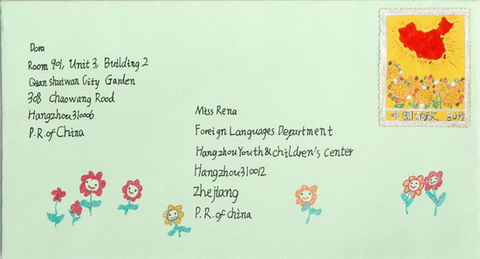 Dora
Room 901, Unit 3 Building 2
Qian Shuiwan City Garden
308 Chaowang Road
Hangzhou 310006
P.R. of China
Miss Rena
Foreign Languages Department
Hangzhou Youth & Children's Center
Hangzhou 310012
Zhejiang
P.R. of China
中国